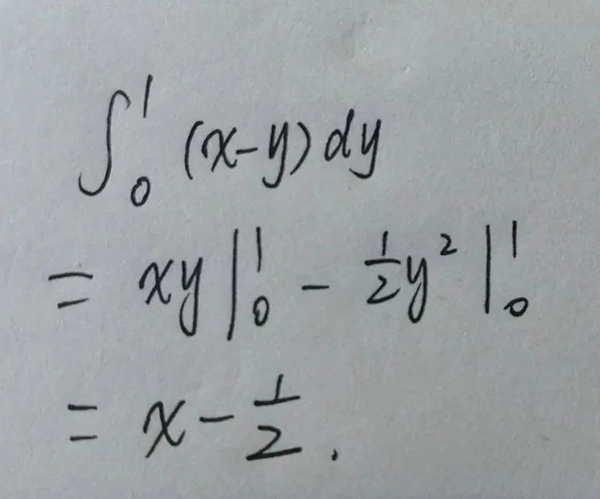 ∫₀¹ (x-y) dy
= xy |₀¹ - ½y² |₀¹
= x - ½.